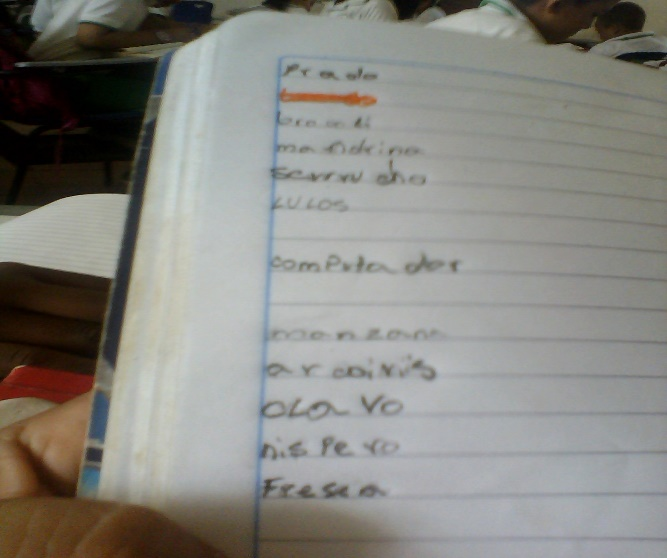 Prado
mandrina
serrucho
LULOS
computador
manzana
arcoiriis
CLAVO
nispero
Fresa